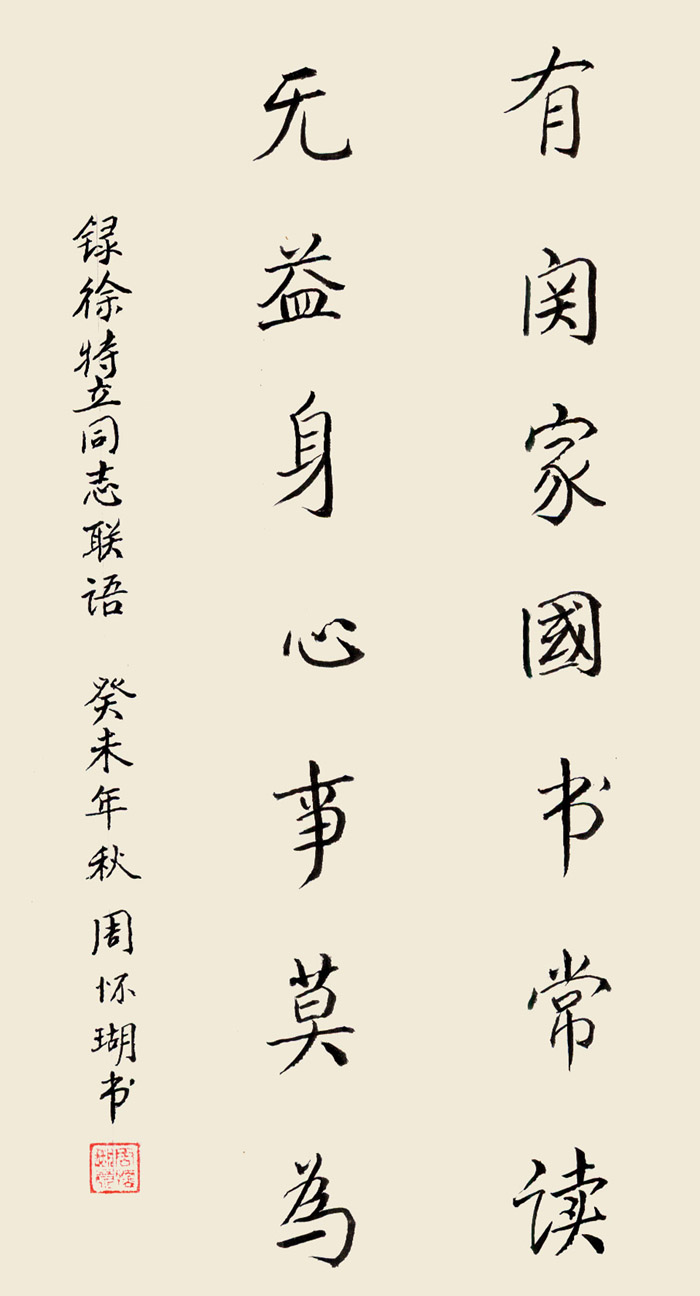 有关家國书常读
无益身心事莫為
録徐特立同志联语 癸未年秋 周怀瑚书